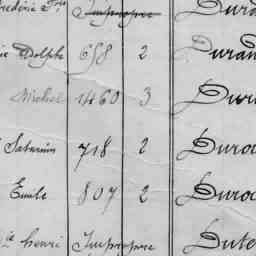 Frédéric Fois Impropre Dura
ie Dolphe 658 2 Duran
Michel 1460 3 Dur
Saturnin 718 2 Duroc
Emile 807 2 Duroc
ie henri Impropre Dute